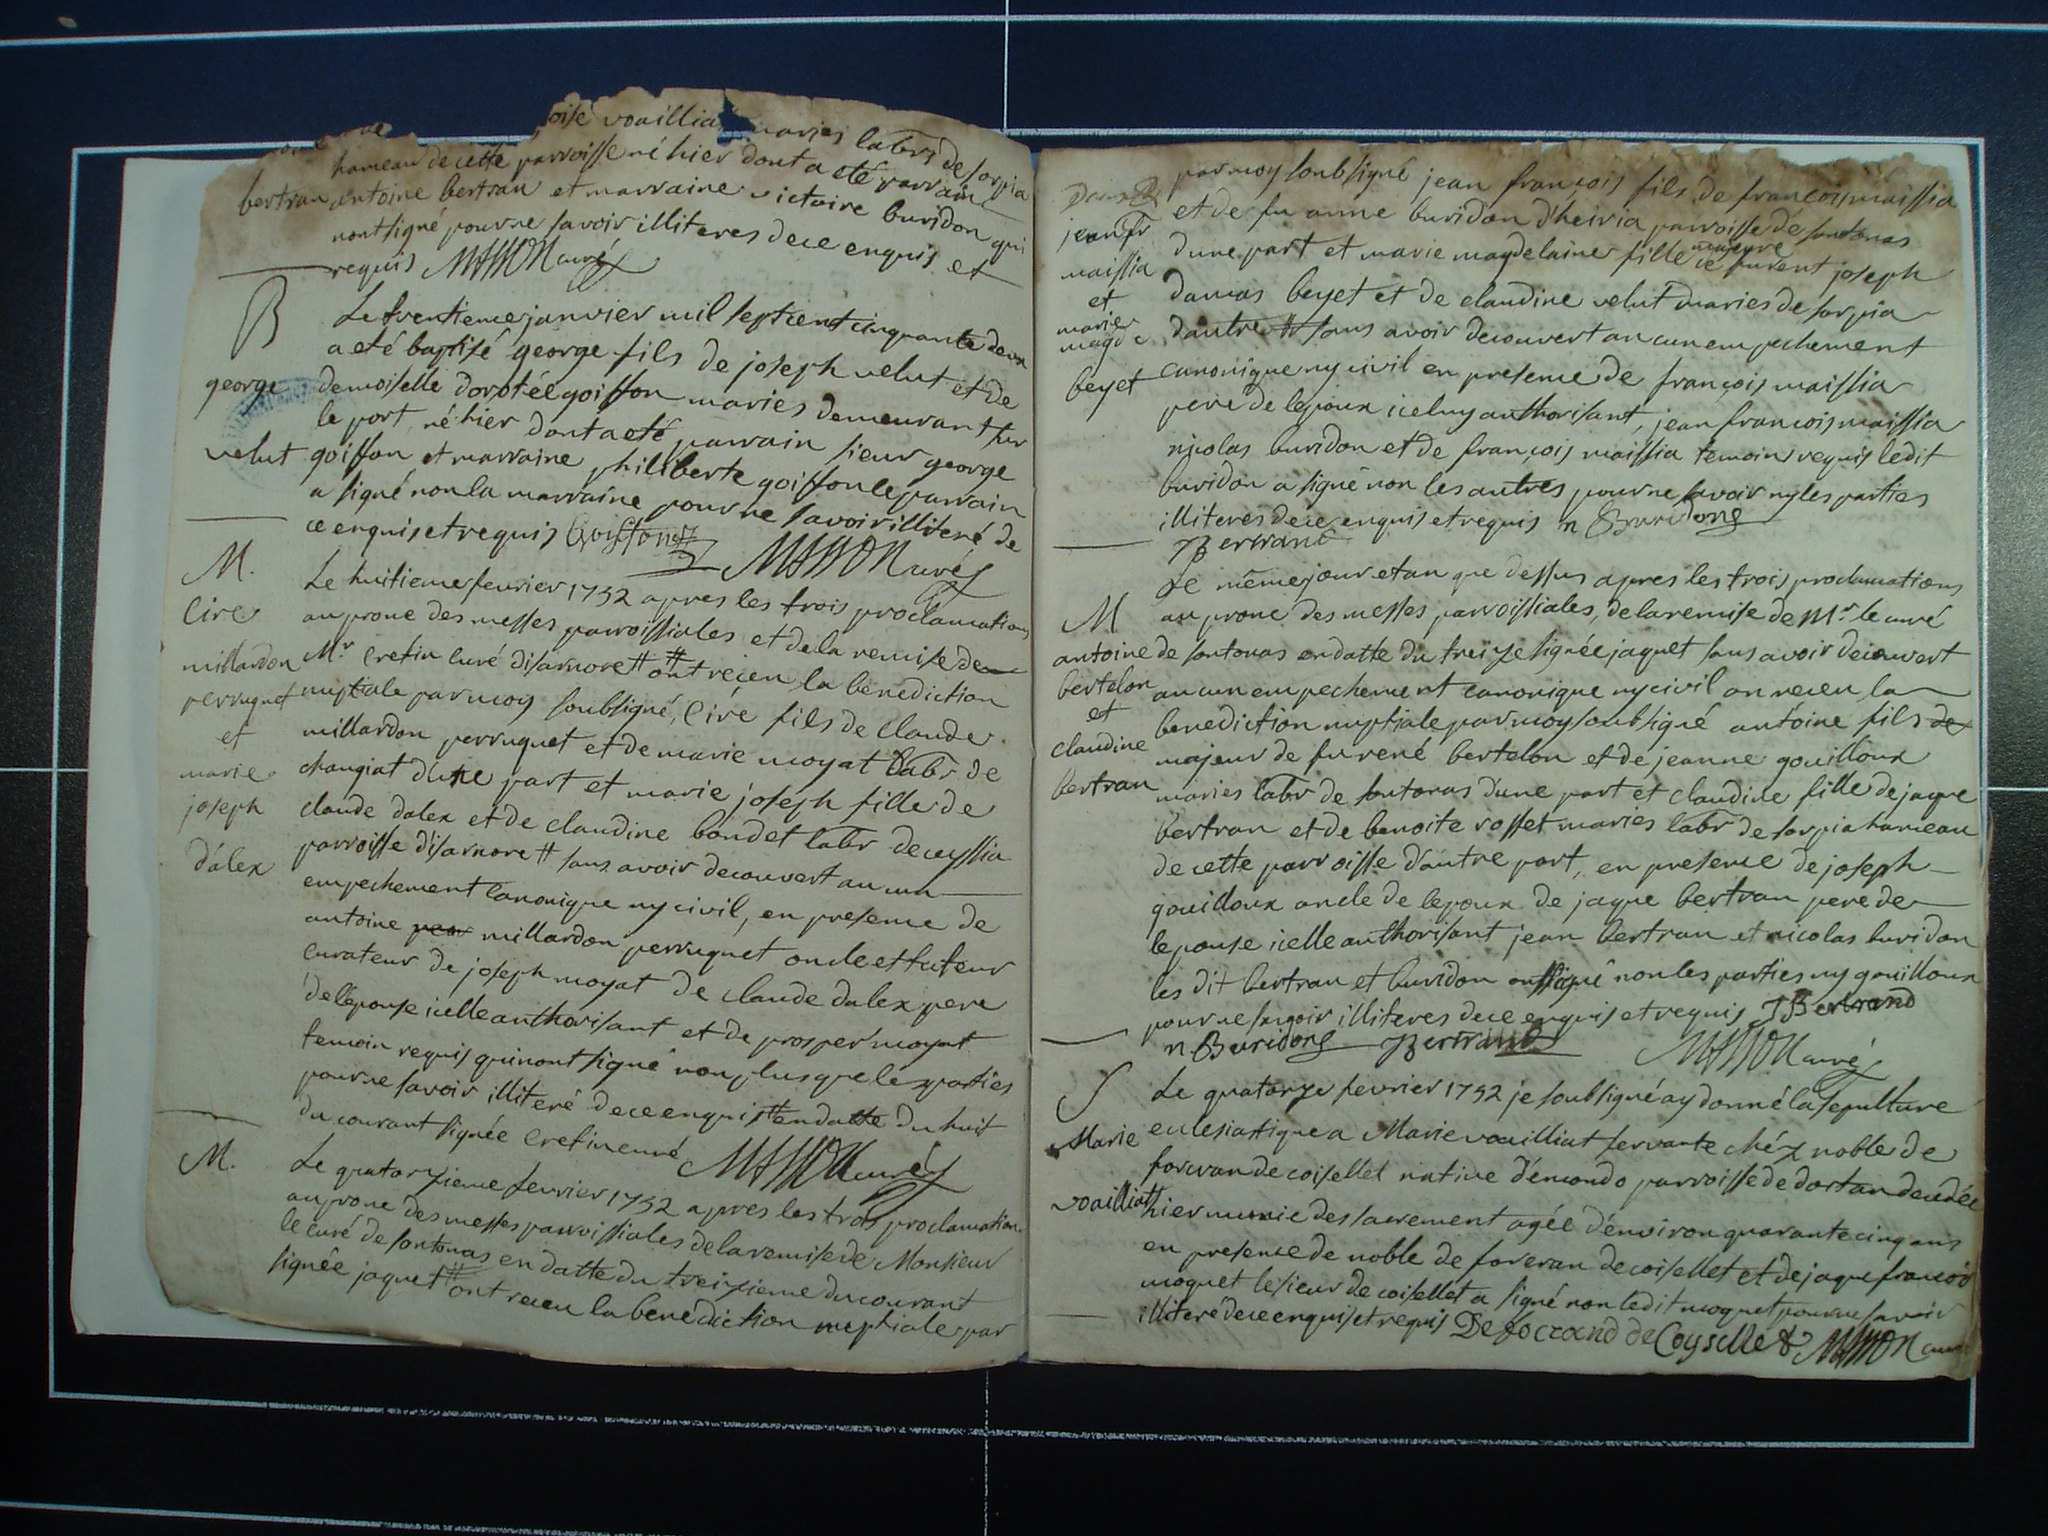 oise voaillia maries labrs de sorpia
hameau de cette parroisse né hier dont a eté parrain
bertran antoine bertran et marraine victoire buridon qui
nont signé pour ne savoir illiteres de ce enquis et
requis MASSON curé
B
Le trentieme janvier mil sept cent cinquante deux
a eté baptisé george fils de joseph velut et de
george demoiselle dorotée goiffon maries demeurant sur
le port, né hier dont a eté parrain sieur george
velut goiffon et marraine philiberte goiffon le parrain
a signé non la marraine pour ne savoir illiteré de
ce enquis et requis Goiffon MASSON curé
M.
Le huitieme fevrier 1752 apres les trois proclamations
Cire au prone des messes parroissiales et de la remise de
millardon Mr cretin curé disarnore # # ont reçeu la benediction
perruquet nuptiale par moy soubsigné, Cire fils de Claude
et millardon perruquet et de marie moyat labr de
marie changiat d'une part et marie joseph fille de
joseph claude dalex et de claudine bondet labr de ceyssia
d'alex parroisse disarnore # sans avoir decouvert aucun
empechement canonique ny civil, en presence de
antoine millardon perruquet oncle et tuteur
curateur de joseph moyat de claude dalex pere
de lepouse icelle authorisant et de prosper moyat
temoin requis qui nont signé non plus que les parties
pour ne savoir illiteré de ce enquis # en datte du huit
du courant signée Cretin curé MASSON curé
M.
Le quatorzieme fevrier 1752 apres les trois proclamation
au prone des messes parroissiales de la remise de Monsieur
le curé de sontonas en datte du treizieme du courant
signée jaquet # ont receu la benediction nuptiale par
par moy soubsigné jean françois fils de françois maissia
jean fr et de fu anne buridon d'heiria parroisse de sontonas
maissia dune part et marie magdelaine fille majeure de furent joseph
et damas beyet et de claudine velut maries de sorpia
marie d'autre # sans avoir decouvert aucun empechement
magde
beyet canonique ny civil en presence de françois maissia
pere de lepoux iceluy authorisant, jean françois maissia
nicolas buridon et de françois maissia temoins requis ledit
buridon a signé non les autres pour ne savoir ny les parties
illiteres de ce enquis et requis n Buridong
J Bertrand
Le même jour et an que dessus apres les trois proclamations
M au prone des messes parroissiales, de la remise de Mr. le curé
antoine de sontonas en datte du treize signée jaquet sans avoir decouvert
bertelon aucun empechement canonique ny civil on receu la
et benediction nuptiale par moy soubsigné antoine fils de
claudine majeur de fu rené bertelon et de jeanne gouilloux
bertran maries labr de sontonas d'une part et claudine fille de jaque
bertran et de benoite rosset maries labr de sorpia hameau
de cette parroisse d'autre part, en presence de joseph
gouilloux oncle de lepoux de jaque bertran pere de
lepouse icelle authorisant jean bertran et nicolas buridon
les dit bertran et buridon ont signé non les parties ny gouilloux
pour ne savoir illiteres de ce enquis et requis J Bertrand
n Buridong J Bertrand MASSON curé
S Le quatorze fevrier 1752 je soubsigné ay donné la sepulture
Marie eclesiastique a Marie voailliat servante chéz noble de
forcran de coisellet native d'émondo parroisse de dortan decedée
voailliat hier munie des sacrement agée d'environ quarante cinq ans
en presence de noble de forcran de coisellet et de jaque françois
moquet le sieur de coisellet a signé non ledit moquet pour ne savoir
illiteré de ce enquis et requis De focrand de Coyselle & MASSON curé